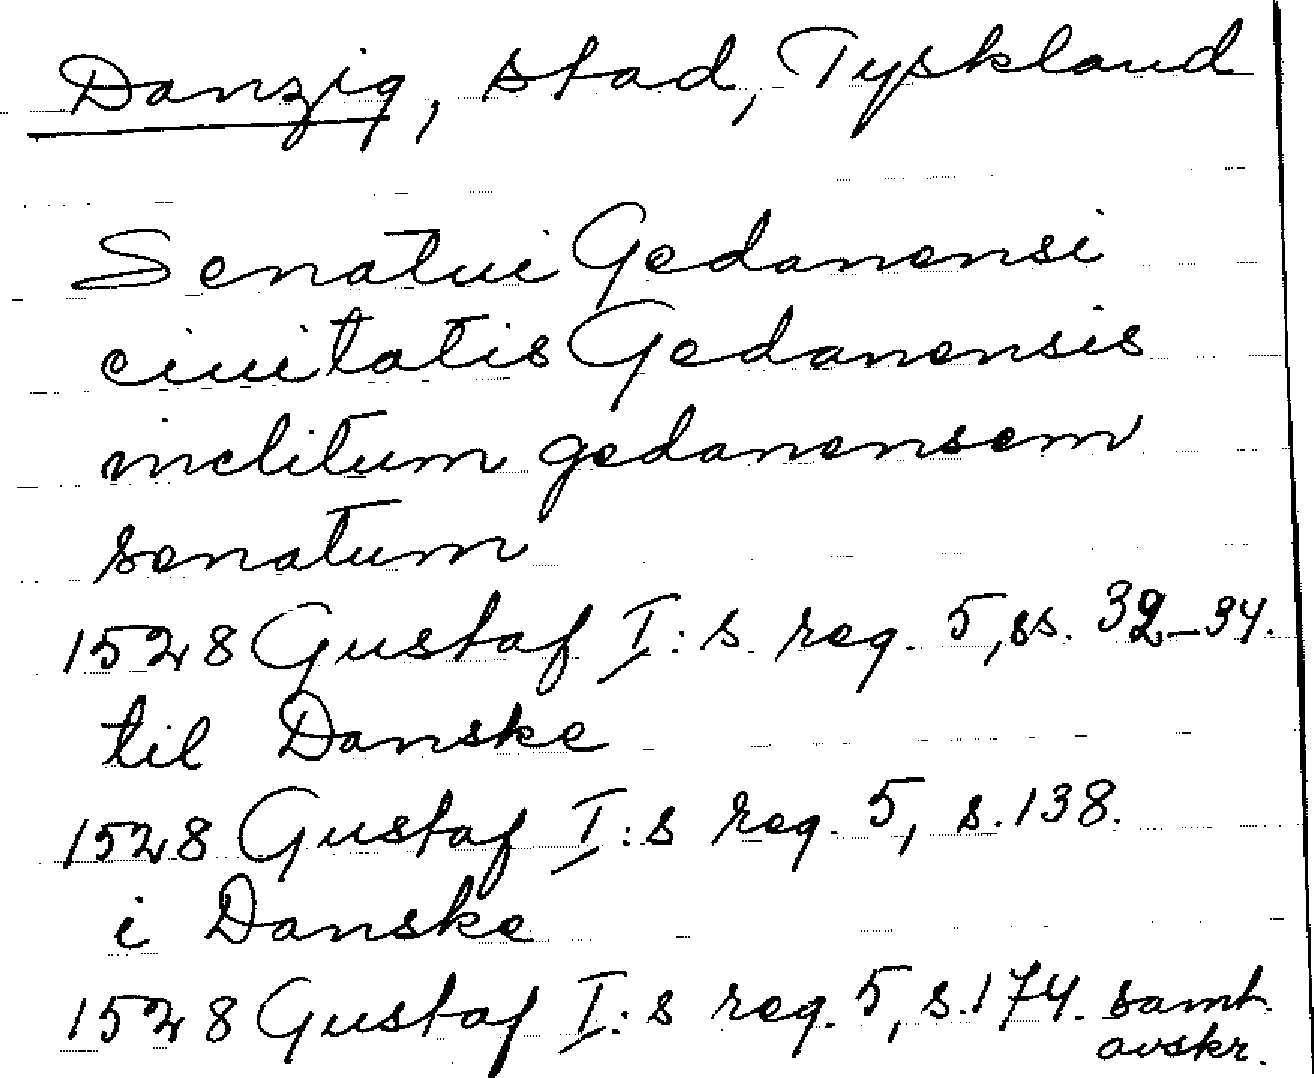 Danzig, stad, Tyskland
Senatui Gedanensi
ciuitatis Gedanensis
inclitum gedanensem
senatum
1528 Gustaf I:s reg. 5, ss. 32-34.
til Danske
1528 Gustaf I:s reg. 5, s. 138.
i Danske
1528 Gustaf I:s reg. 5, s. 174. samt.
avskr.